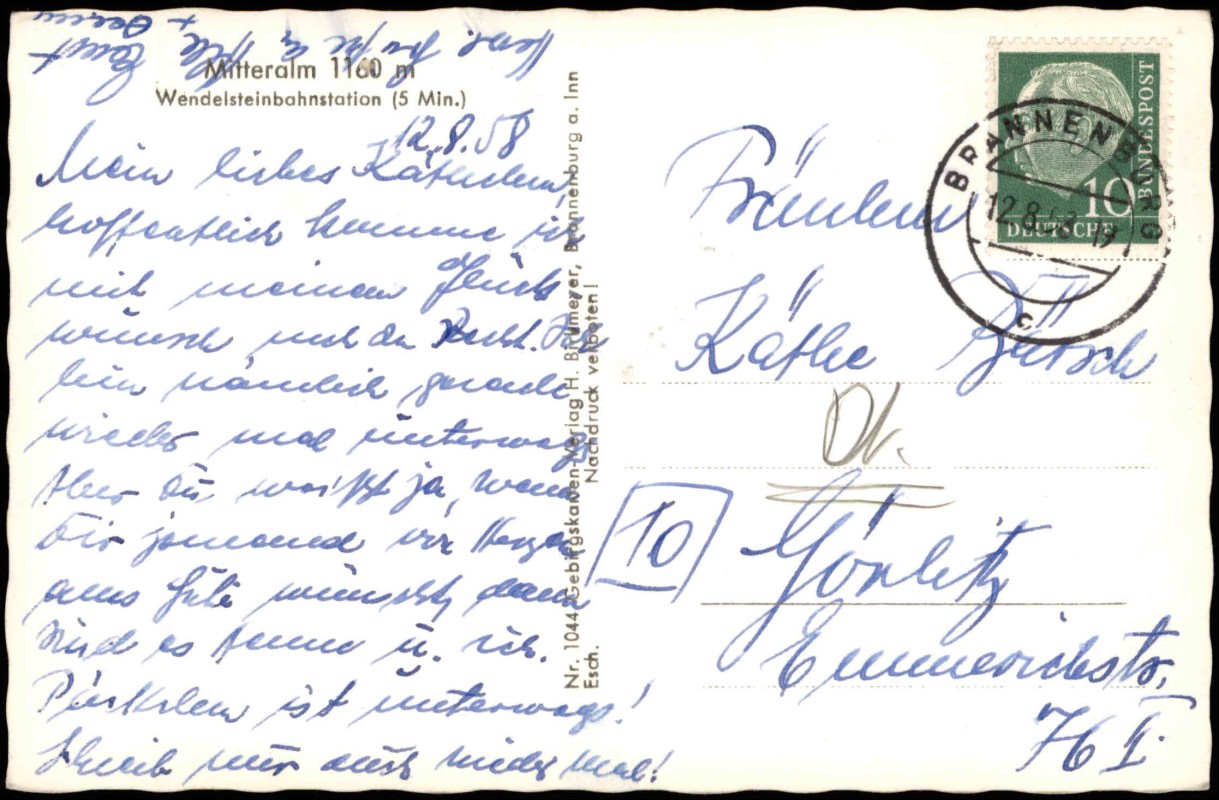 Mitteralm 1160 m
Wendelsteinbahnstation (5 Min.)
12.8.58
Mein liebes Käthelein,
hoffentlich komme ich
mit meinem Glück
wünsch noch zu Recht. Ich
bin nämlich gerade
wieder mal unterwegs
Aber Du weißt ja, wenn
Dir jemand von Herzen
alles Gute wünscht, dann
sind es Hanne u. ich.
Päckchen ist unterwegs!
Schreib nur auch wieder mal!
Herzl. Grüße
Nr. 1044 Gebirgskarten-Verlag H. Birkmeyer, Brannenburg a. Inn
Esch. Nachdruck verboten!
BRANNENBURG
12.8.58-17
c
DEUTSCHE BUNDESPOST
10
Fräulein
Käthe Bartsch
10
Görlitz
Emmerichstr.
76 II.